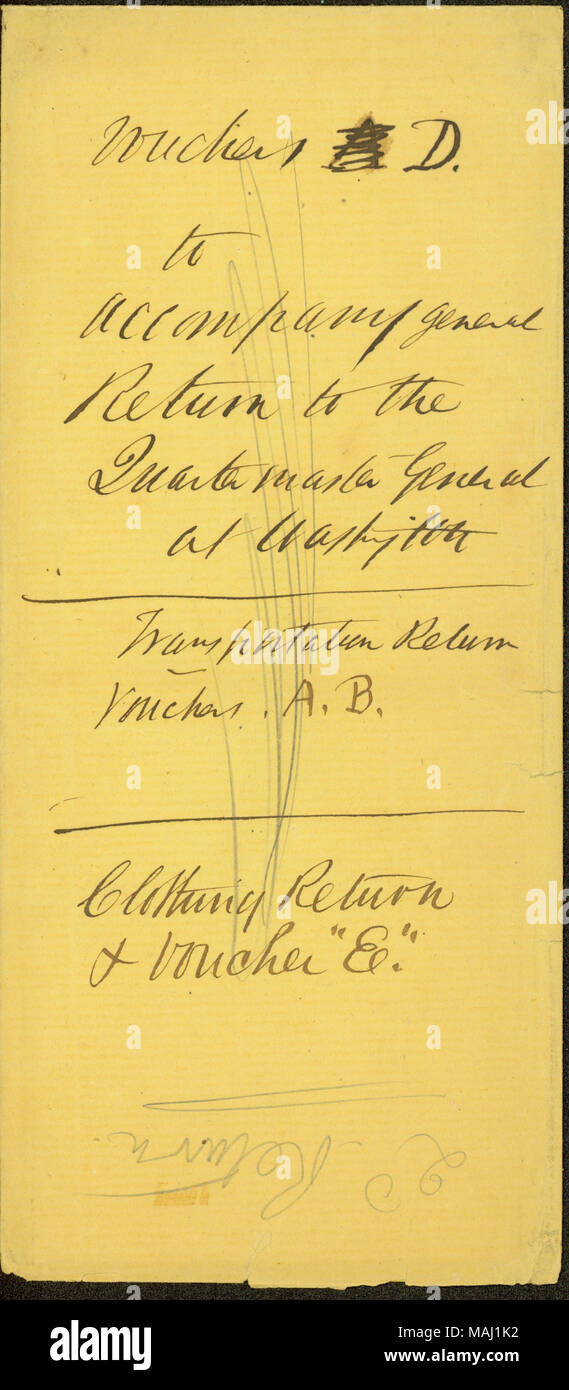 Vouchers D.
to
accompany general
Return to the
Quartermaster General
at Washington
Transportation Return
Vouchers. A. B.
Clothing Return
& Voucher "E".
Return
alamy
Image ID: MAJ1K2
www.alamy.com